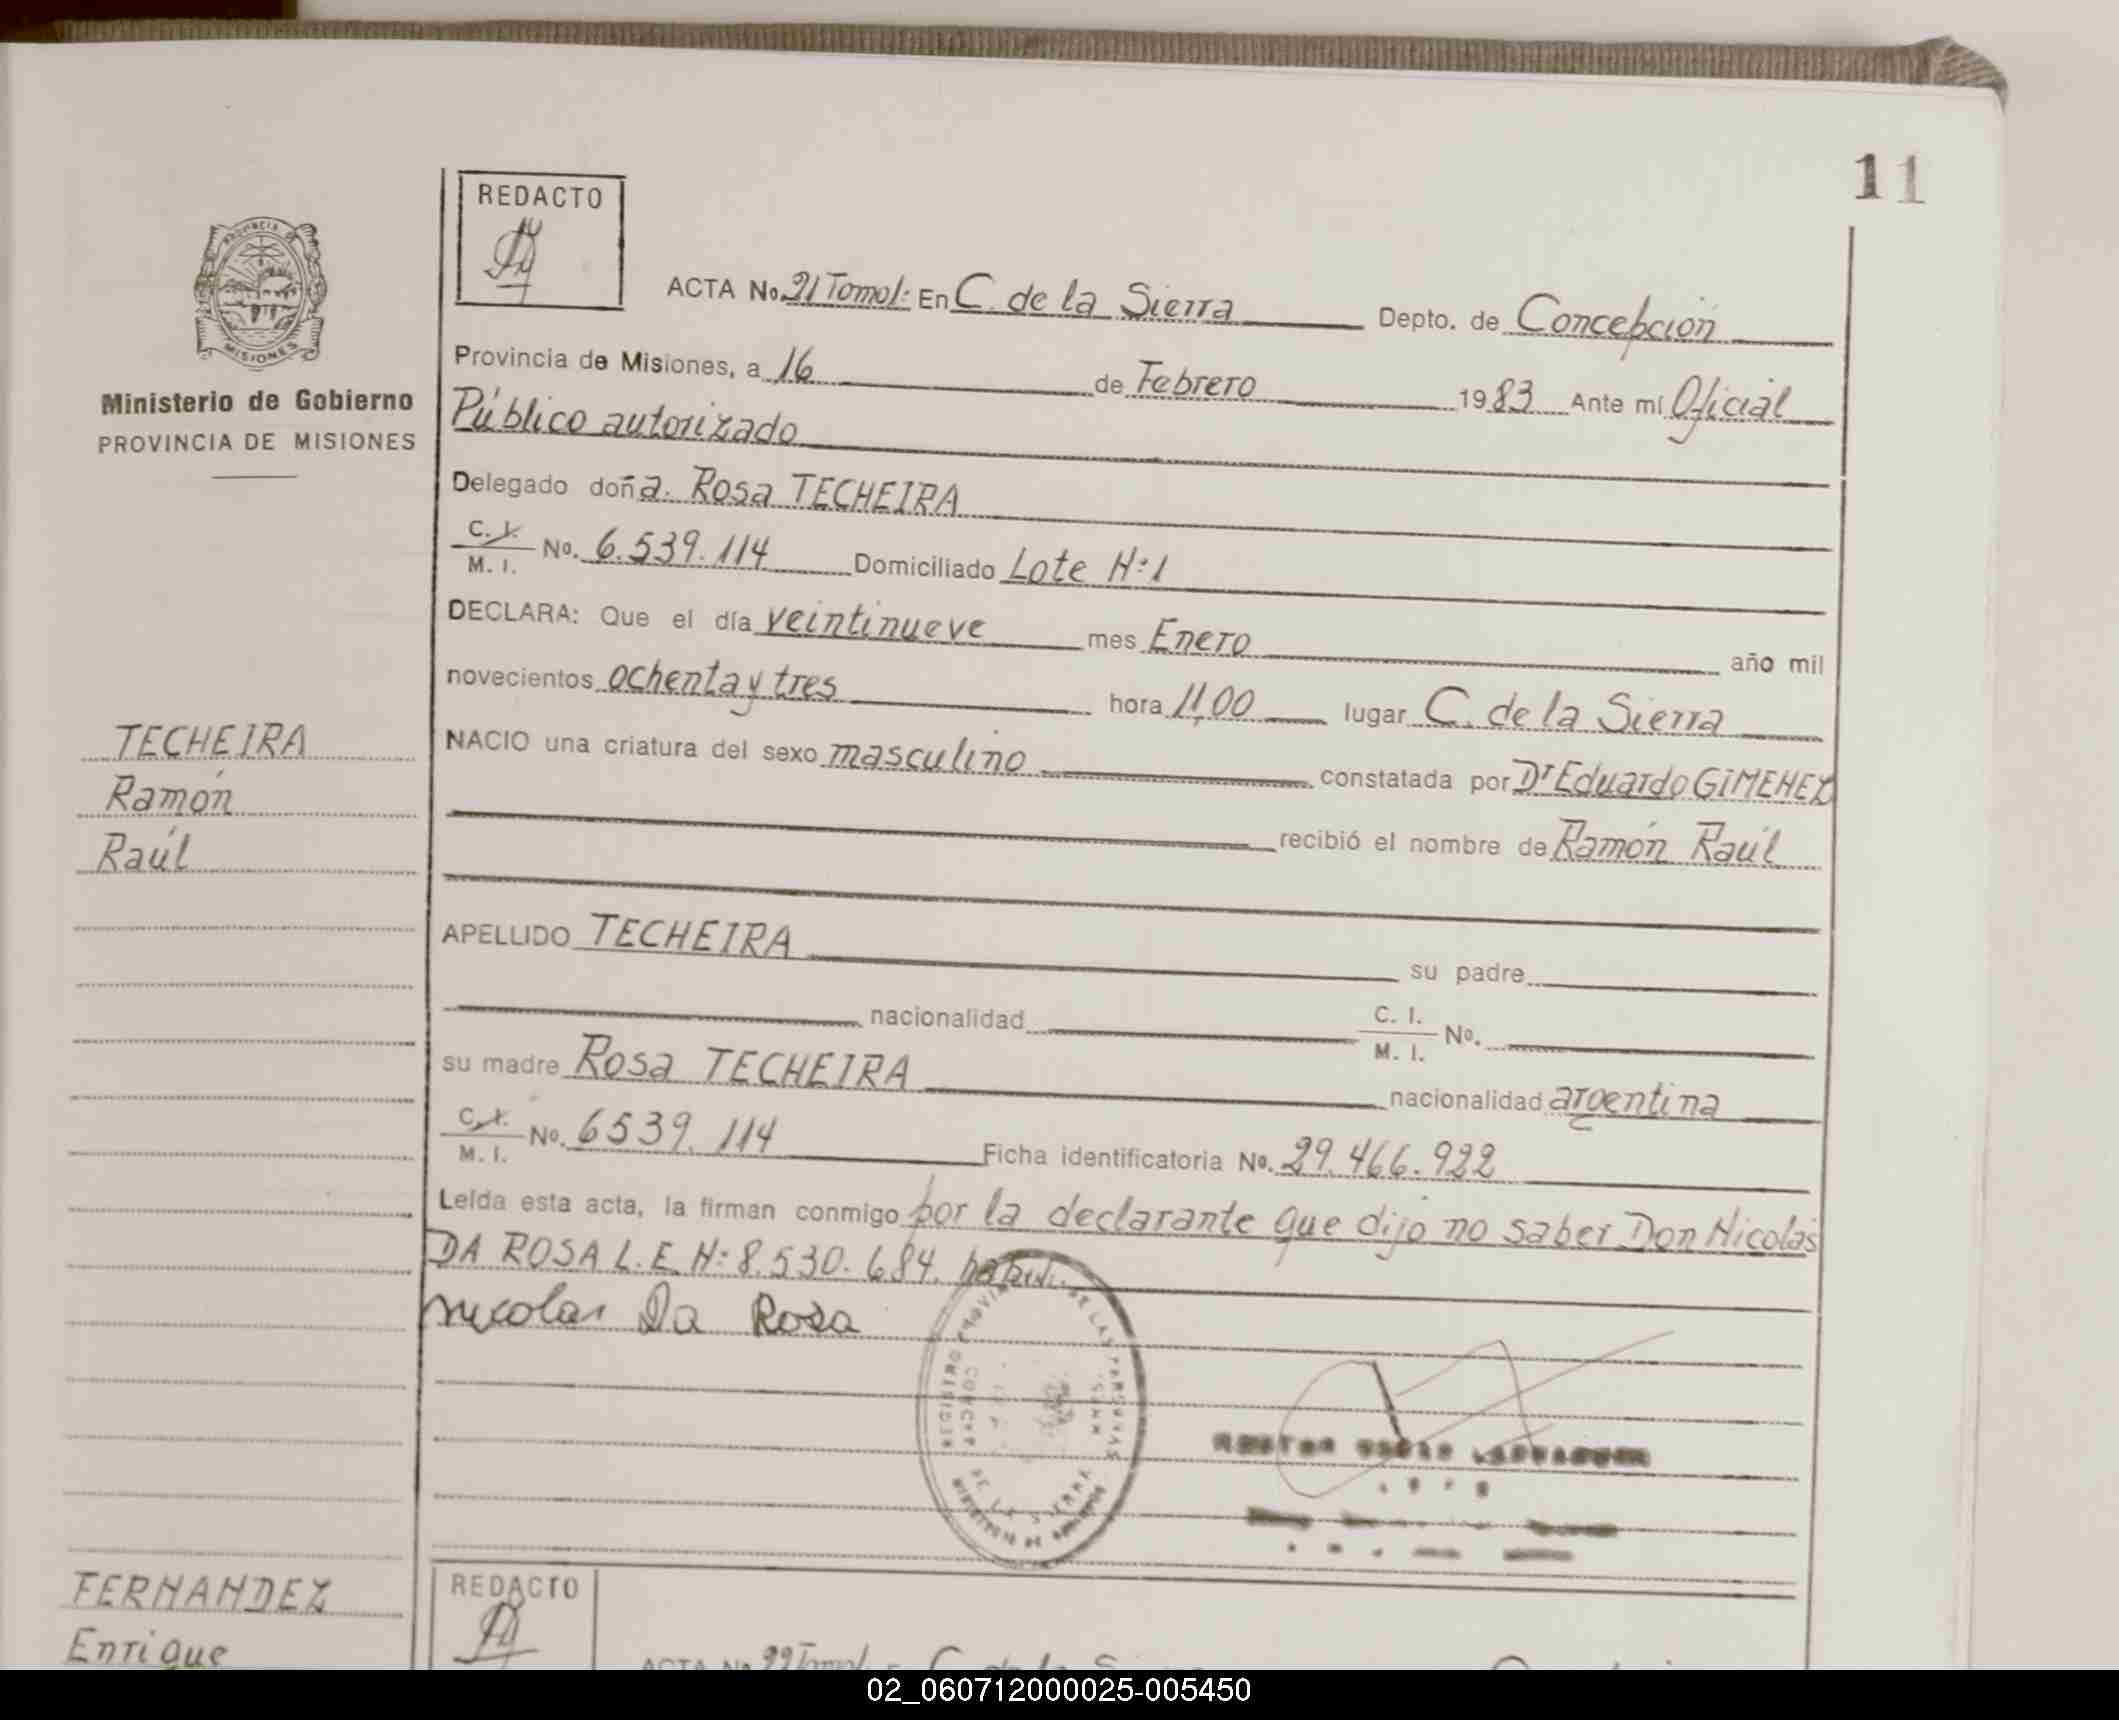 11
REDACTO
ACTA No. 21 Tomo I: En C. de la Sierra Depto. de Concepción
Provincia de Misiones, a 16 de Febrero 1983 Ante mí Oficial
Público autorizado
Delegado doña. Rosa TECHEIRA
C. I. M. I. No. 6.539.114 Domiciliado Lote N:1
DECLARA: Que el día veintinueve mes Enero año mil
novecientos ochenta y tres hora 11,00 lugar C. de la Sierra
NACIO una criatura del sexo masculino constatada por Dr Eduardo GIMENEZ
recibió el nombre de Ramón Raúl
APELLIDO TECHEIRA su padre
nacionalidad C. I. M. I. No.
su madre Rosa TECHEIRA nacionalidad argentina
C. I. M. I. No. 6539.114 Ficha identificatoria No. 29.466.922
Leída esta acta, la firman conmigo por la declarante que dijo no saber Don Nicolás
DA ROSA L.E.N: 8.530.684.
Nicolas Da Rosa
PROVINCIA DE MISIONES
Ministerio de Gobierno
PROVINCIA DE MISIONES
TECHEIRA
Ramón
Raúl
DE LAS PERSONAS
DE LA SIERRA
FERNANDEZ
Enrique
REDACTO
ACTA No. 22 Tomo I
02_060712000025-005450